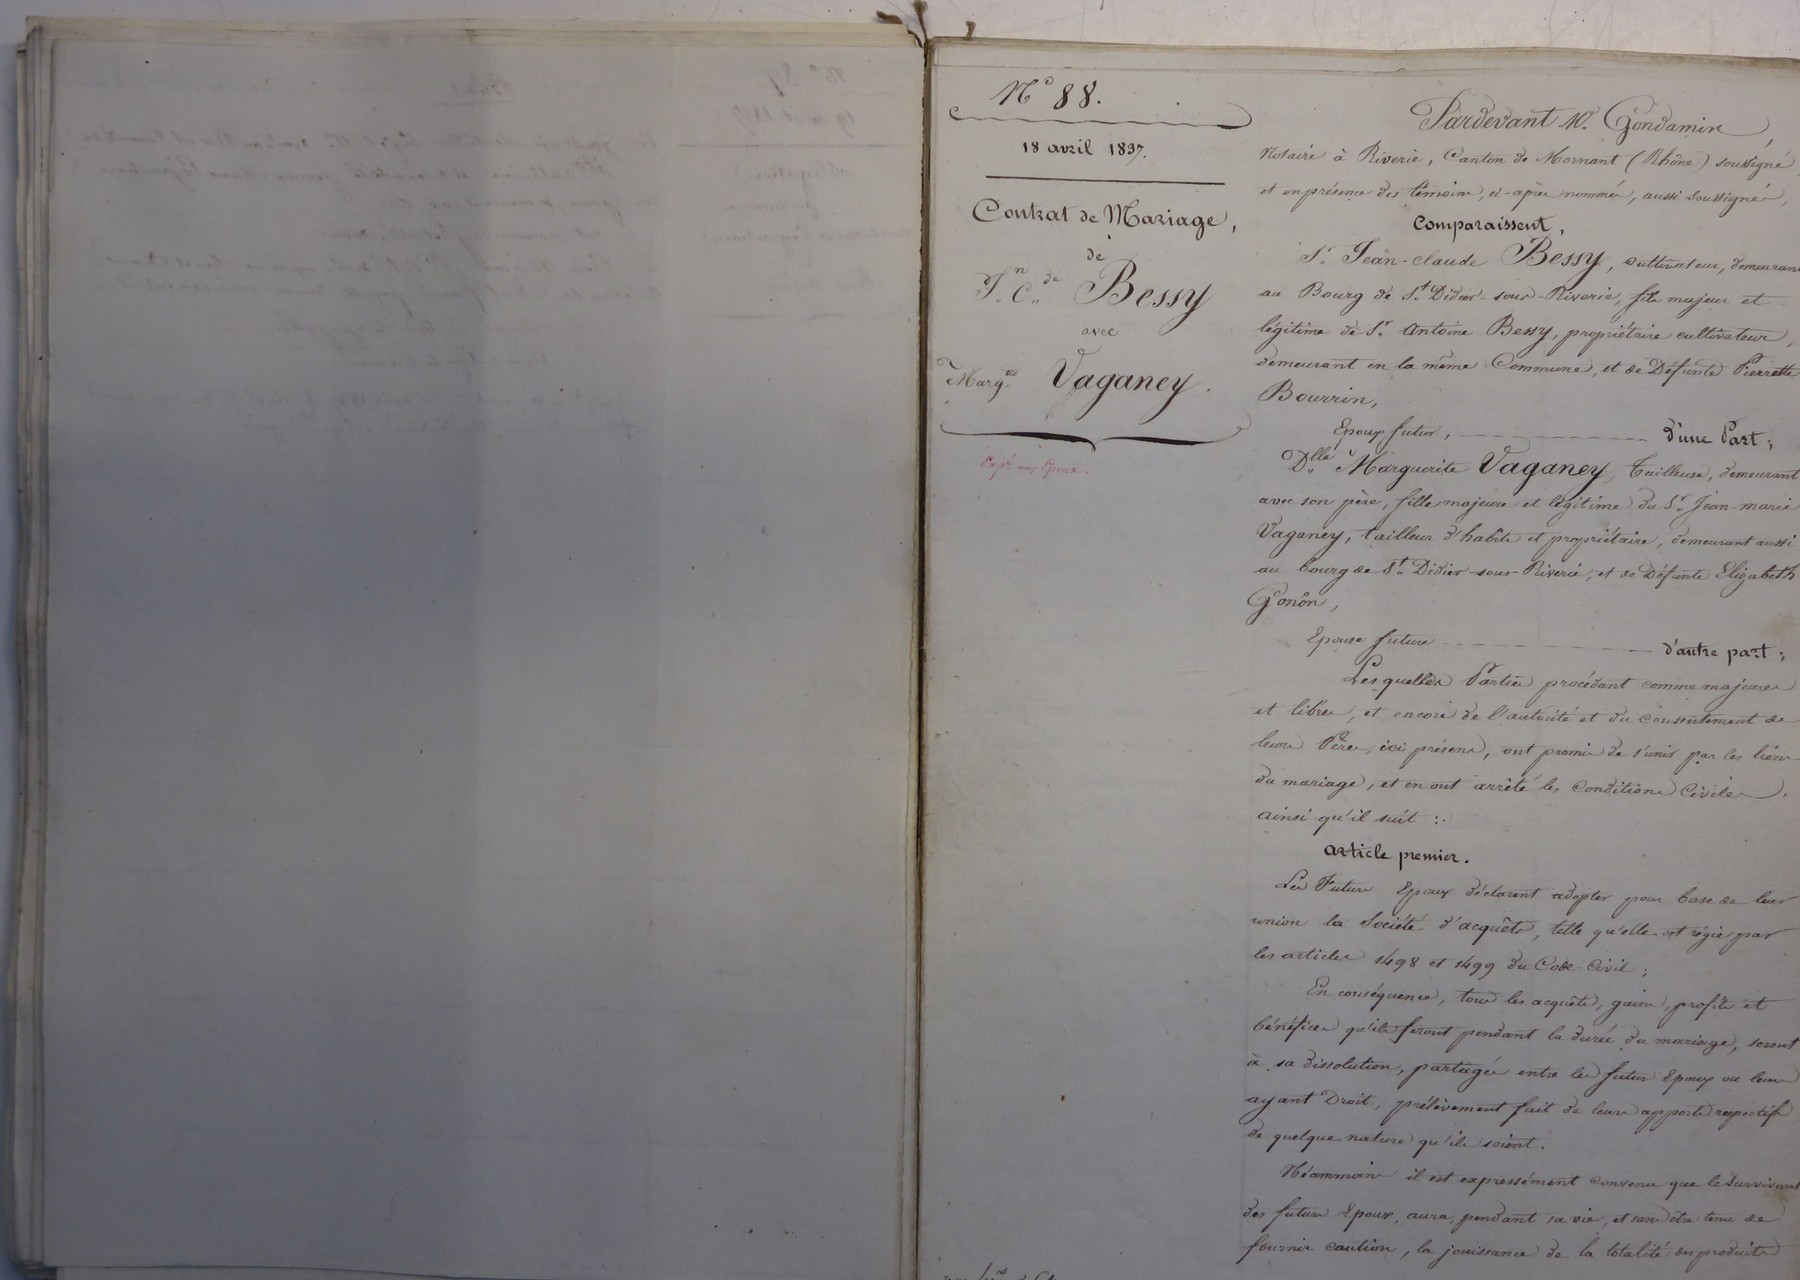 N° 88.
18 avril 1837.
Contrat de Mariage,
de
Jn. Cde. Bessy
avec
Margte. Vaganey.
Expé. aux Epoux.
Pardevant Me. Gondamin
Notaire à Riverie, Canton de Mornant (Rhône) soussigné,
et en présence des témoins, ci-après nommés, aussi soussignés,
Comparaissent,
Sr. Jean-Claude Bessy, cultivateur, demeurant
au Bourg de St. Didier-sous-Riverie, fils majeur et
légitime de Sr. Antoine Bessy, propriétaire cultivateur,
demeurant en la même Commune, et de Défunte Pierrette
Bourrin,
Epoux futur, d'une Part;
Dlle. Marguerite Vaganey, Tailleuse, demeurant
avec son père, fille majeure et légitime du Sr. Jean-marie
Vaganey, tailleur d'habits et propriétaire, demeurant aussi
au bourg de St. Didier-sous-Riverie, et de Défunte Elizabeth
Gonon,
Epouse future d'autre part;
Lesquelles Parties procédant comme majeures
et libres, et encore de l'autorité et du Consentement de
leurs Pères, ici présens, ont promis de s'unir par les liens
du mariage, et en ont arrêté les Conditions Civiles,
ainsi qu'il suit :
article premier.
Les Futurs Epoux déclarent adopter pour base de leur
union la Société d'acquêts, telle qu'elle est régie par
les articles 1498 et 1499 du Code Civil;
En conséquence, tous les acquêts, gains, profits et
bénéfices qu'ils feront pendant la durée du mariage, seront
à sa dissolution, partagés entre les futurs Epoux ou leurs
ayant Droit, prélèvement fait de leurs apports respectifs
de quelque nature qu'ils soient.
Néammoins il est expressément convenu que le Survivant
des futurs Epoux, aura, pendant sa vie, et sans être tenu de
fournir caution, la jouissance de la totalité des produits